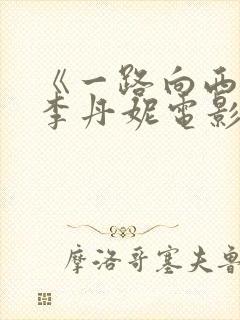 《一路向西
李丹妮电影
摩洛哥塞夫鲁